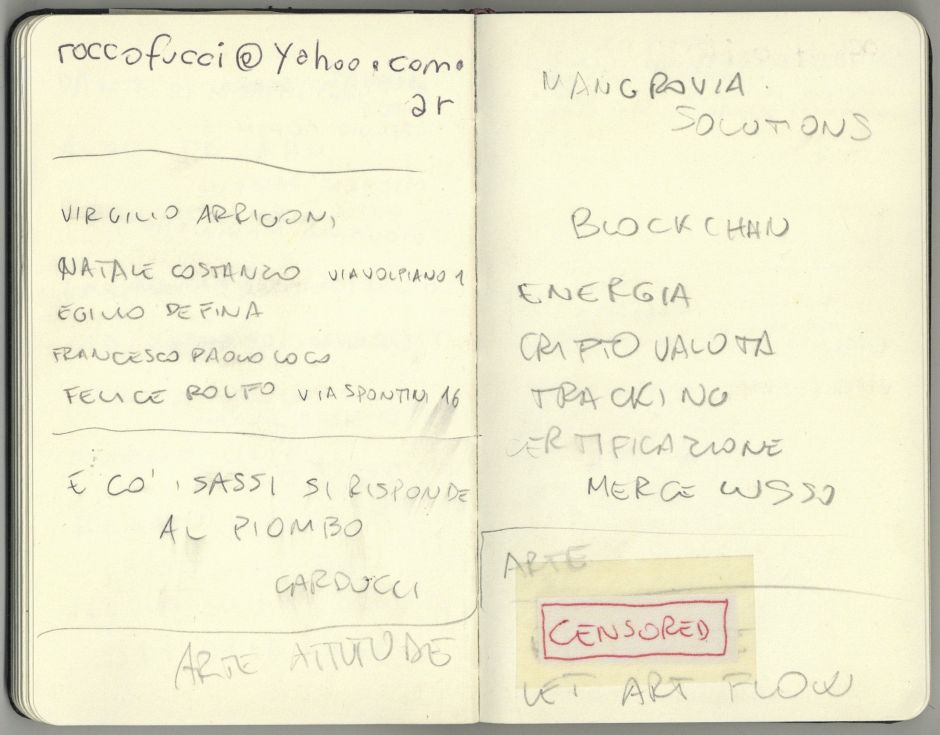 roccofucci@yahoo.com.
ar
VIRGILIO ARRIGONI
NATALE COSTANZO VIA VOLPIANO 1
EGILIO DEFINA
FRANCESCO PAOLO LOCO
FELICE ROLFO VIA SPONTINI 16
E CO' I SASSI SI RISPONDE
AL PIOMBO
CARDUCCI
ARTE ATTITUDE
MANGROVIA
SOLUTIONS
BLOCKCHAIN
ENERGIA
CRIPTO VALUTA
TRACKING
CERTIFICAZIONE
MERCE LUSSO
ARTE
CENSORED
LET ART FLOW